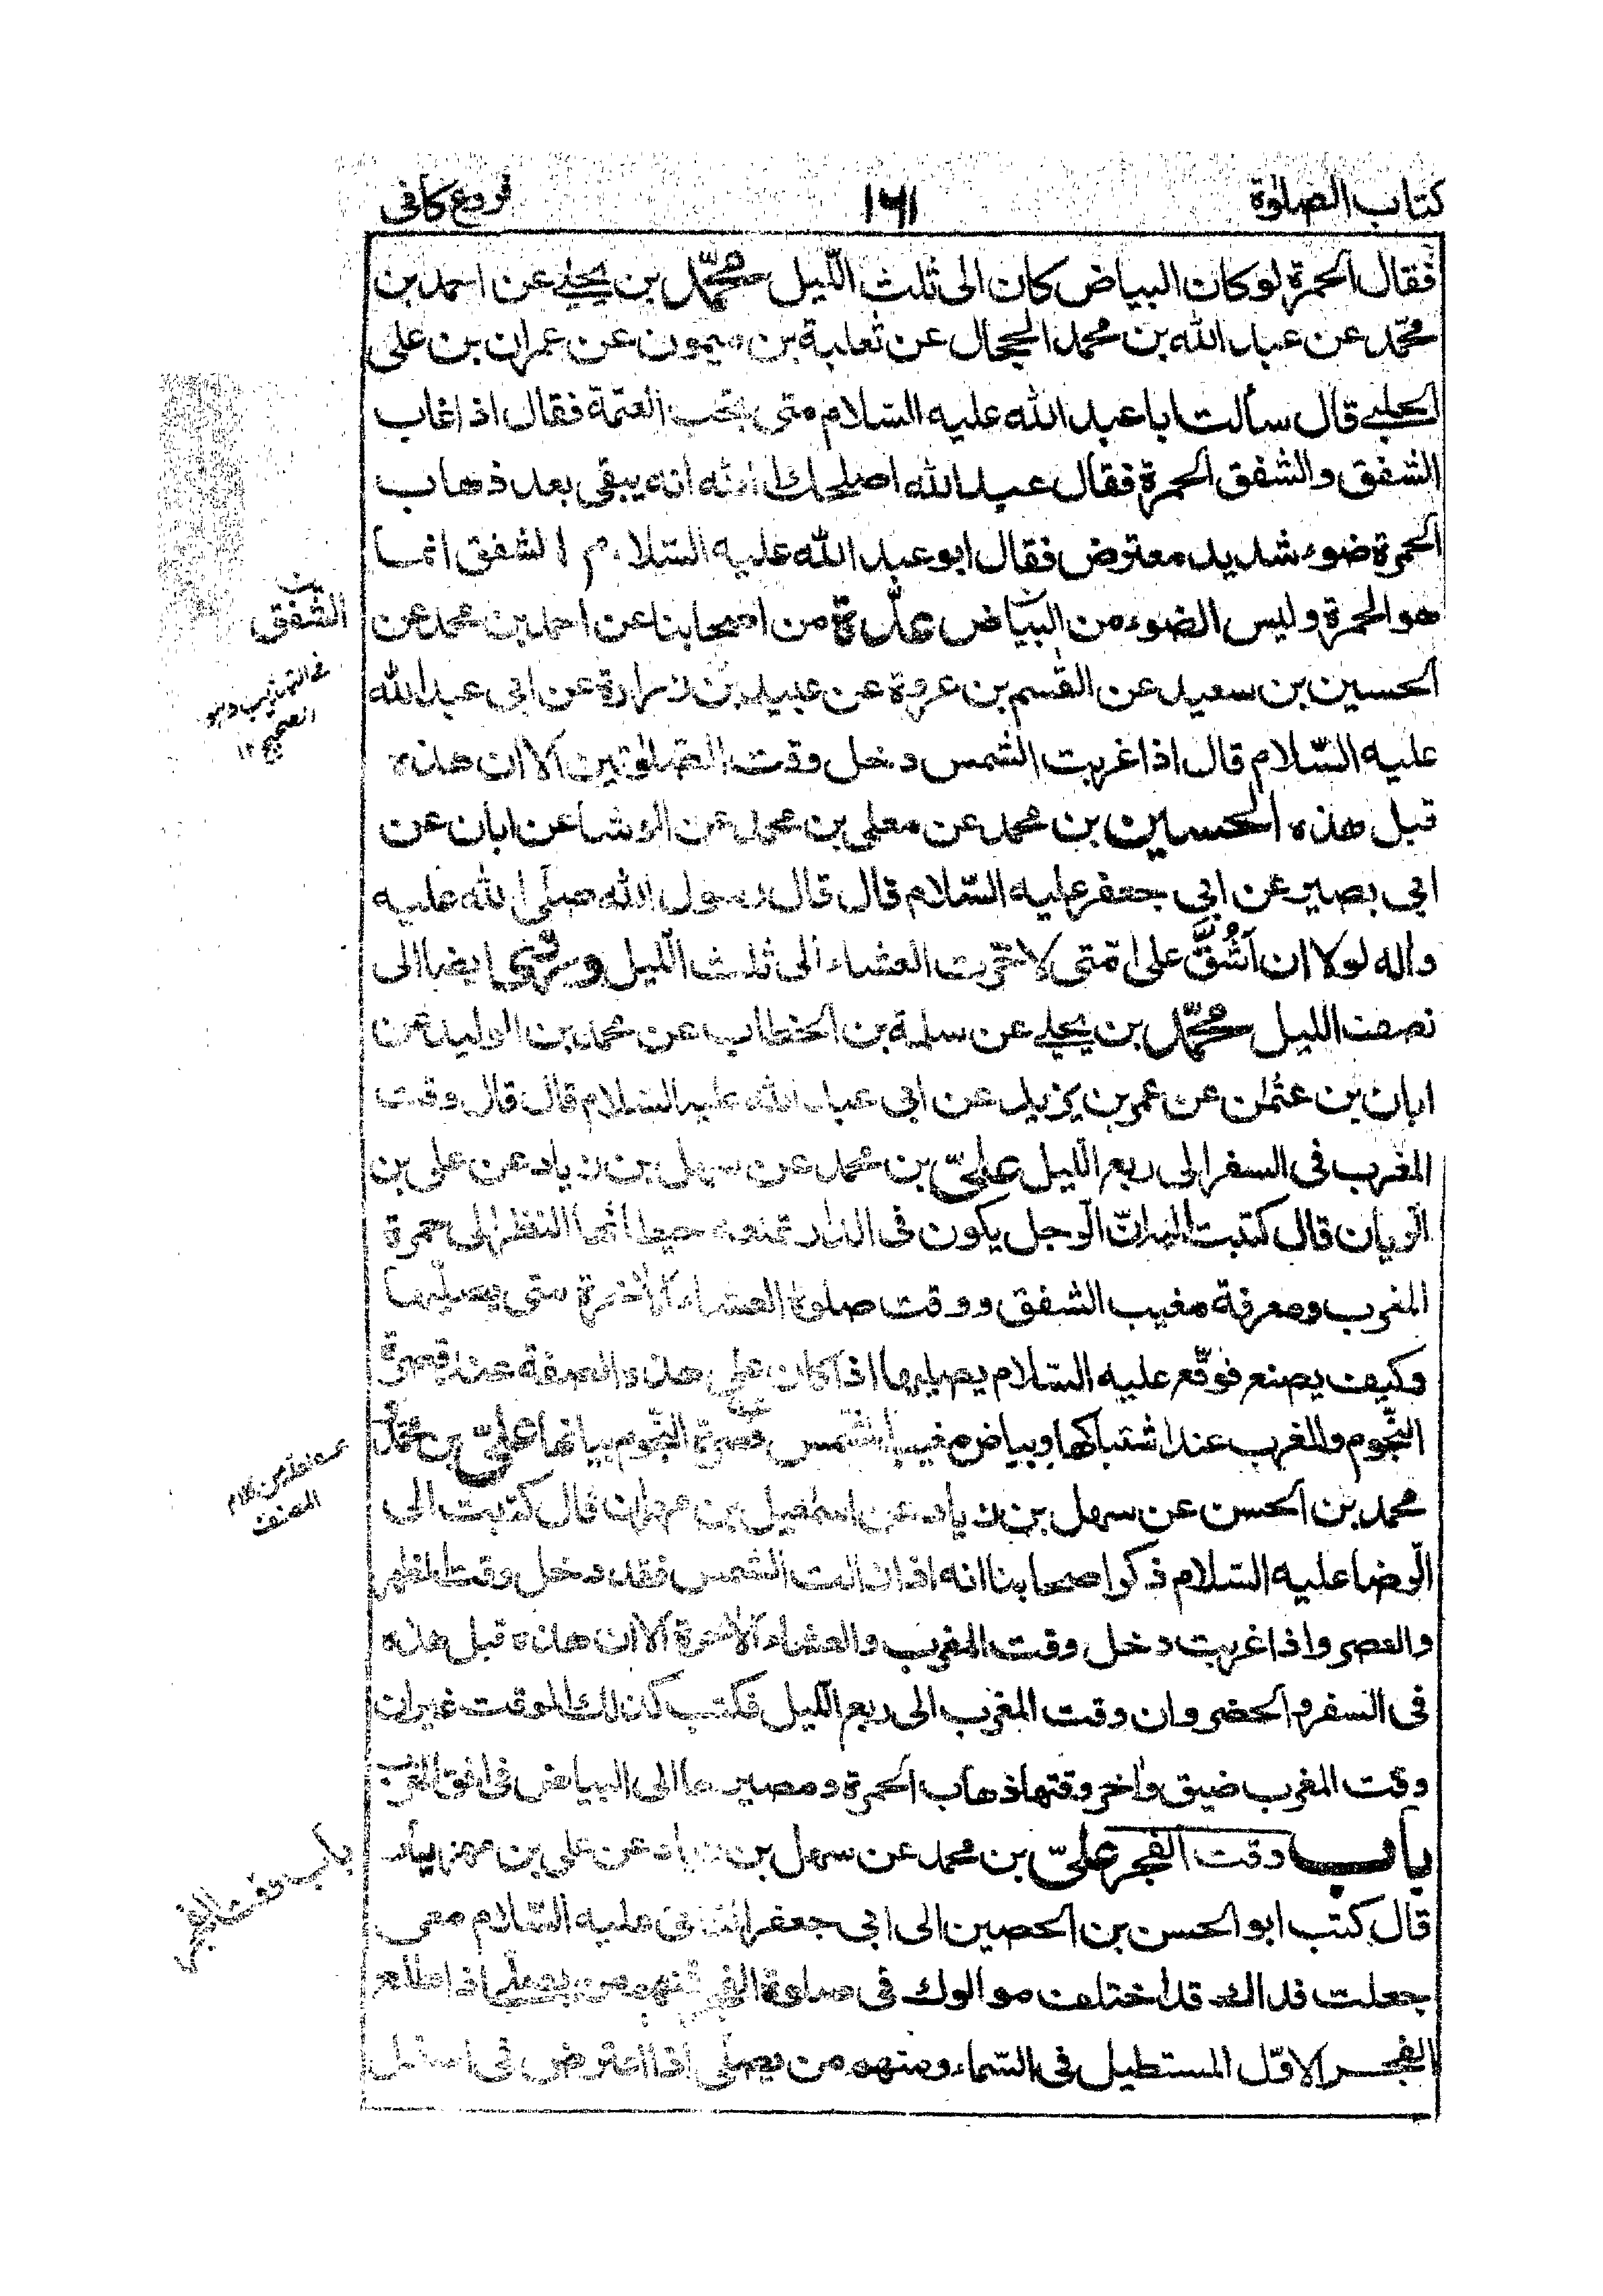 كتاب الصلوٰة ١٦١ فروع كافى
فقال الحمرة لو كان البياض كان الى ثلث الليل محمّد بن يحيى عن احمد بن
محمّد عن عبد الله بن محمد الحجال عن ثعلبة بن ميمون عن عمران بن على
الحلبى قال سألت ابا عبد الله عليه السّلام متى تجب العتمة فقال اذا غاب
الشفق والشفق الحمرة فقال عبيد الله اصلحك الله انه يبقى بعد ذهاب
الحمرة ضوء شديد معترض فقال ابو عبد الله عليه السّلام الشفق انما
هو الحمرة وليس الضوء من البيّاض عدّة من اصحابنا عن احمد بن محمد عن
الحسين بن سعيد عن القٰسم بن عروة عن عبيد بن زرارة عن ابى عبد الله
عليه السّلام قال اذا غربت الشمس دخل وقت الصّلوٰتين الا ان هذه
قبل هذه الحسين بن محمد عن معلى بن محمد عن الوشا عن ابان عن
ابي بصير عن ابي جعفر عليه السّلام قال قال رسول الله صلّى الله عليه
واٰله لولا ان اَشُقَّ على امّتى لاخّرت العشاء الى ثلث اللّيل وروى ايضا الى
نصف الليل محمّد بن يحيى عن سلمة بن الخطاب عن محمد بن الوليد عن
ابان بن عثمٰن عن عمر بن يزيد عن ابى عبد الله عليه السّلام قال قال وقت
المغرب فى السفر الى ربع اللّيل علىّ بن محمد عن سهل بن زياد عن على بن
الرّيان قال كتبت اليه الرّجل يكون فى الدار تمنعه حيطانها النظر الى حمرة
المغرب ومعرفة مغيب الشفق ووقت صلوة العشاء الاخرة متى يصلّيها
وكيف يصنع فوقّع عليه السّلام يصليها اذا كان على هذه الصفة عند قصرة
النّجوم والمغرب عند اشتباكها وبياض مغيب الشمس قصرة النّجوم بيانها علىّ بن محمّد
محمد بن الحسن عن سهل بن زياد عن اسمٰعيل بن مهران قال كتبت الى
الرّضا عليه السّلام ذكر اصحابنا انه اذا زالت الشّمس فقد دخل وقت الظهر
والعصر واذا غربت دخل وقت المغرب والعشاء الاخرة الا ان هذه قبل هذه
فى السفر والحضر وان وقت المغرب الى ربع اللّيل فكتب كذلك الوقت غير ان
وقت المغرب ضيق واٰخر وقتها ذهاب الحمرة ومصيرها الى البياض فى افق المغرب
باب وقت الفجر علىّ بن محمد عن سهل بن زياد عن على بن مهزيار
قال كتب ابو الحسن بن الحصين الى ابى جعفر الثانى عليه السّلام معى
جعلت فداك قد اختلف موالوك فى صلوة الفجر فمنهم من يصلّى اذا طلع
الفجر الاوّل المستطيل فى السّماء ومنهم من يصلّى اذا اعترض فى اسفل
الشّفق
فى التهذيب وهو
الصحيح ١٢
من كلام
المصنف
باب وقت الفجر